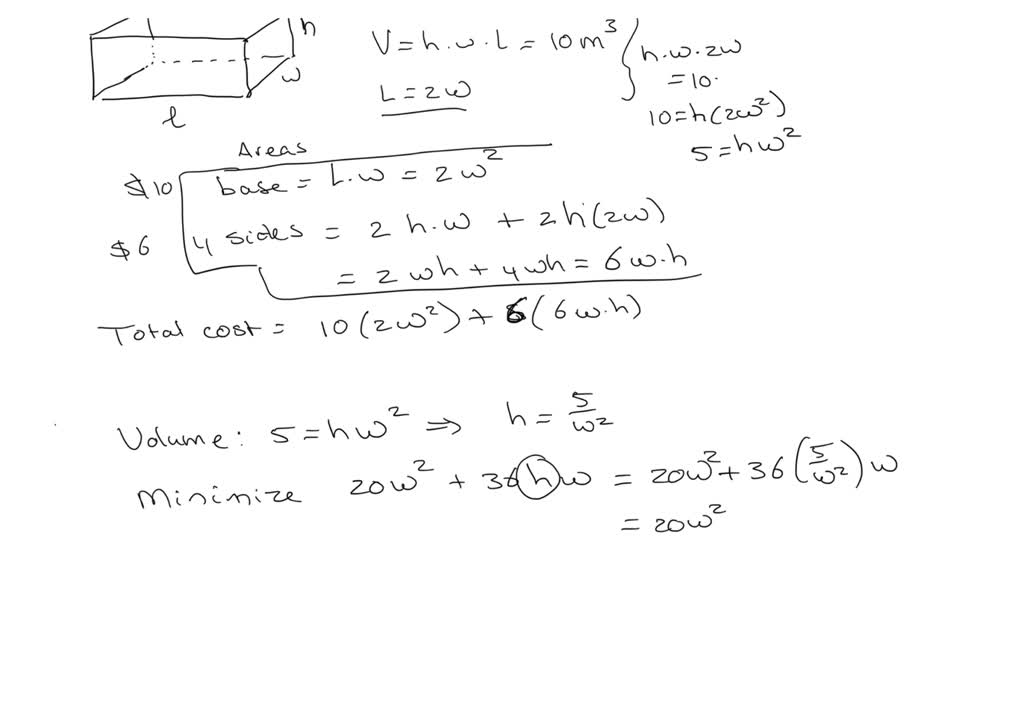 h
w
l
V = h · w · L = 10 m³
L = 2w
h · w · 2w
= 10.
10 = h(2w²)
5 = hw²
Areas
$10 base = L · w = 2w²
$6 4 sides = 2 h · w + 2h(2w)
= 2 wh + 4wh = 6w · h
Total cost = 10(2w²) + 6(6w · h)
Volume: 5 = hw² ⇒ h = 5/w²
Minimize 20w² + 36hw = 20w² + 36(5/w²)w
= 20w²